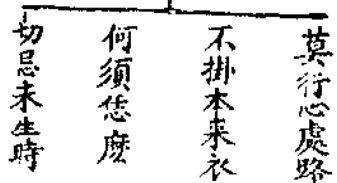 莫行心處路
不掛本来衣
何須恁麽
切忌未生時